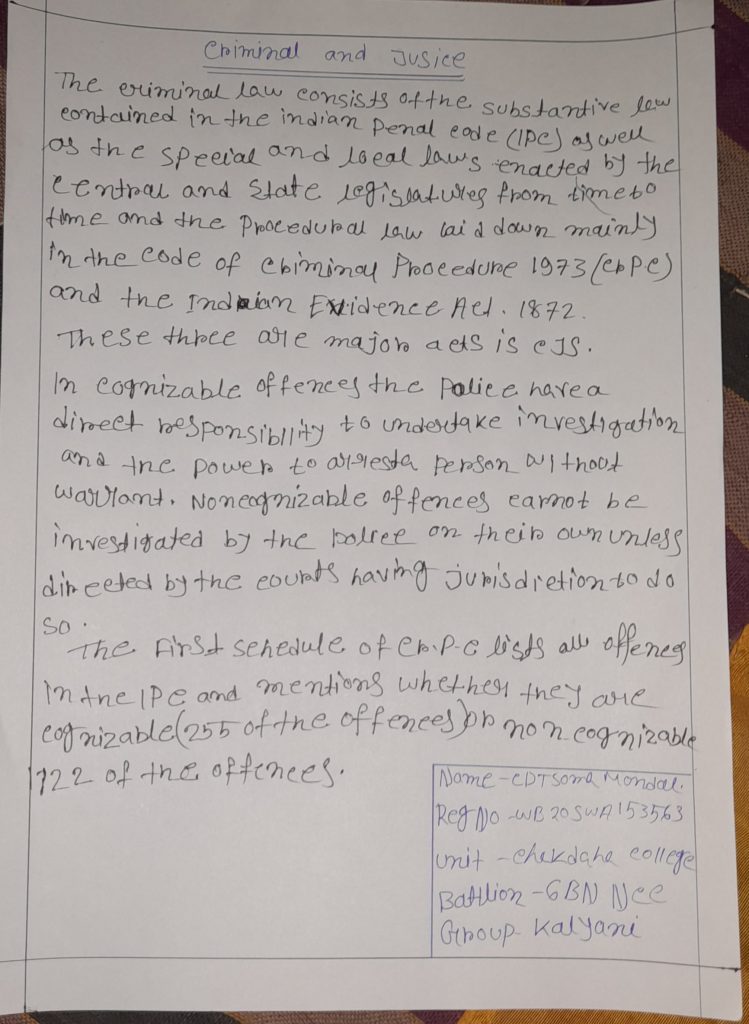 Criminal and Jusice
The criminal law consists of the substantive law
contained in the indian Penal code (IPC) as well
as the special and local laws enacted by the
central and State legislatures from time to
time and the Procedural law laid down mainly
in the code of criminal Procedure 1973 (crPC)
and the Indian Evidence Act. 1872.
These three are major acts is CJS.
In cognizable offences the Police have a
direct responsiblity to undertake investigation
and the power to arrest a person without
warrant. Noncognizable offences cannot be
investigated by the police on their own unless
directed by the courts having jurisdiction to do
so.
The First schedule of Cr.P.C lists all offences
in the IPC and mentions whether they are
cognizable (255 of the offences) or non cognizable
122 of the offences.
Name - CDT Soma Mondal.
Reg No - WB 20 SWA 153563
Unit - chakdaha college
Battlion - 6BN NCC
Group - Kalyani